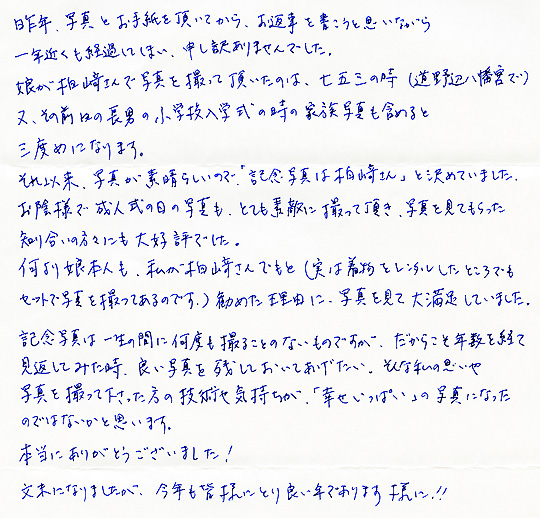 昨年、写真とお手紙を頂いてから、お返事を書こうと思いながら
一年近くも経過してしまい、申し訳ありませんでした。
娘が柏崎さんで写真を撮って頂いたのは、七五三の時(道野辺八幡宮で)
又、その前回の長男の小学校入学式の時の家族写真も含めると
三度めになります。
それ以来、写真が素晴らしいので、「記念写真は柏崎さん」と決めていました。
お陰様で成人式の日の写真も、とても素敵に撮って頂き、写真を見てもらった
知り合いの方々にも大好評でした。
何より娘本人も、私が柏崎さんでもと(実は着物をレンタルしたところでも
セットで写真を撮ってあるのです。)勧めた理由に、写真を見て大満足していました。
記念写真は一生の間に何度も撮ることのないものですが、だからこそ年数を経て
見返してみた時、良い写真を残しておいてあげたい。そんな私の思いや
写真を撮って下さった方の技術や気持ちが、「幸せいっぱい」の写真になった
のではないかと思います。
本当にありがとうございました!
文末になりましたが、今年も皆様にとり良い年であります様に!!